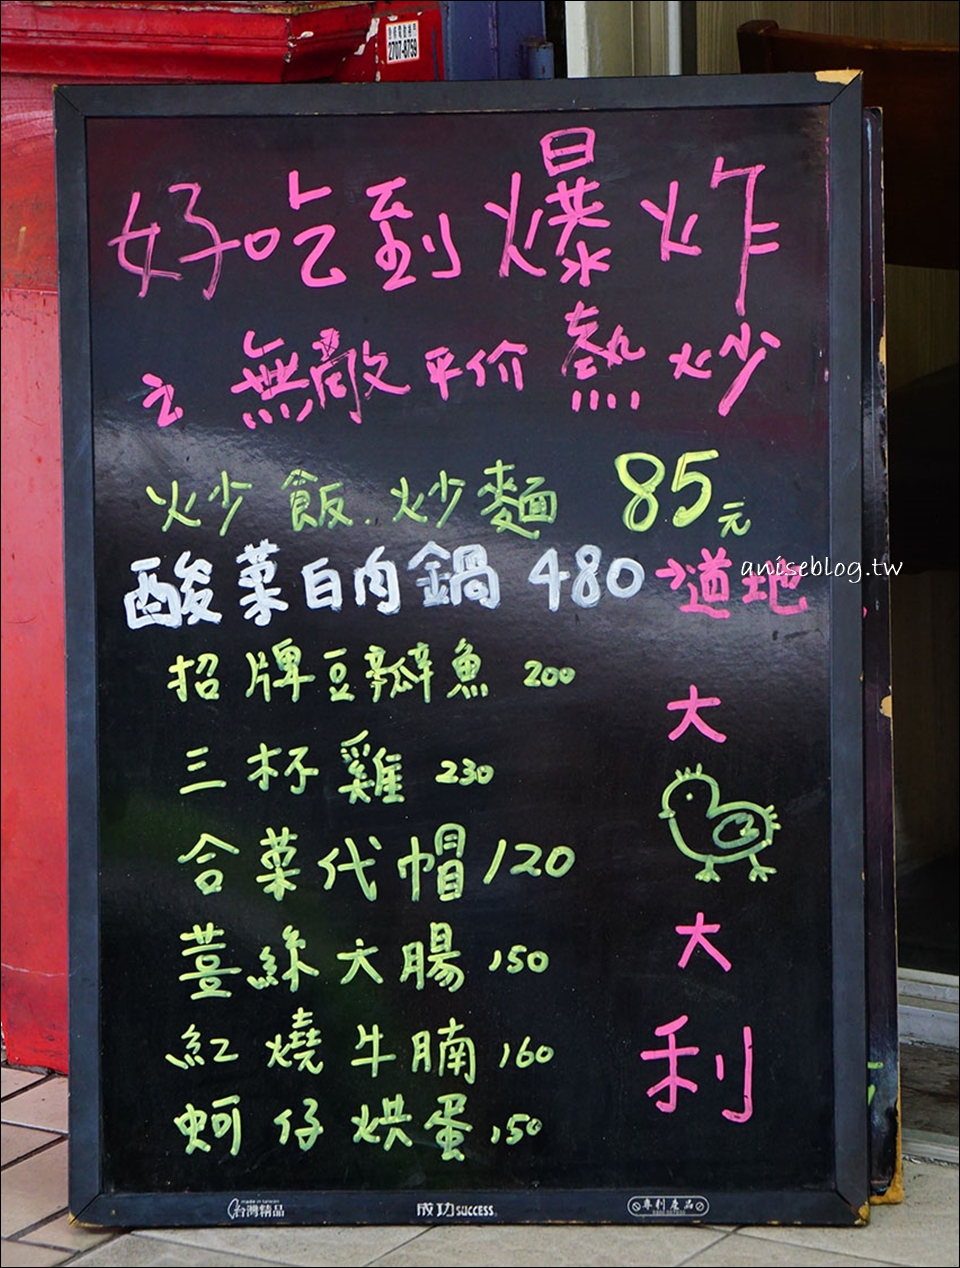 2707-8759
好吃到爆炸
之 無敵平价熱炒
炒飯.炒麵 85元
酸菜白肉鍋 480 道地
aniseblog.tw
招牌豆瓣魚 200
三杯雞 230
合菜代帽 120
薑絲大腸 150
紅燒牛腩 160
蚵仔烘蛋 150
大
大
利
made in taiwan
台灣精品
成功SUCCESS
專利產品